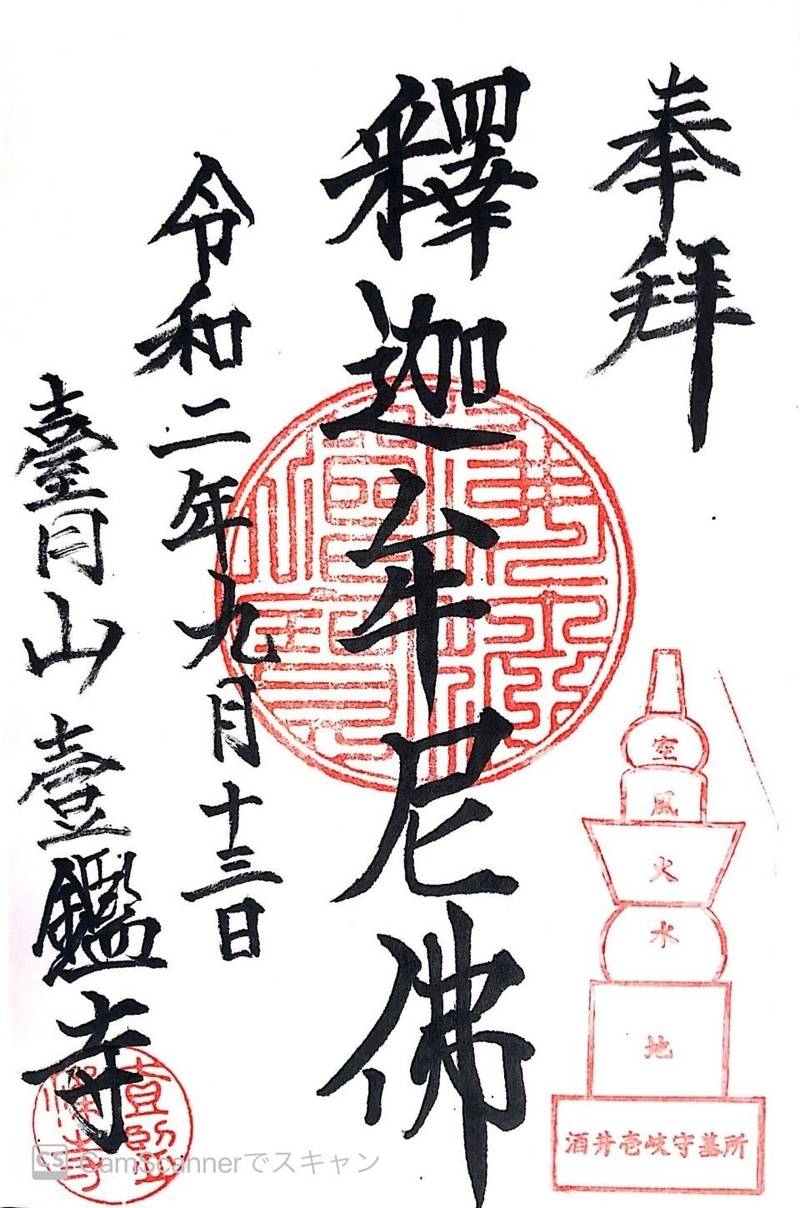 奉拜
釋迦牟尼佛
令和二年九月十三日
臺月山壹鑑寺
空
風
火
水
地
酒井壱岐守墓所
CS CamScannerでスキャン